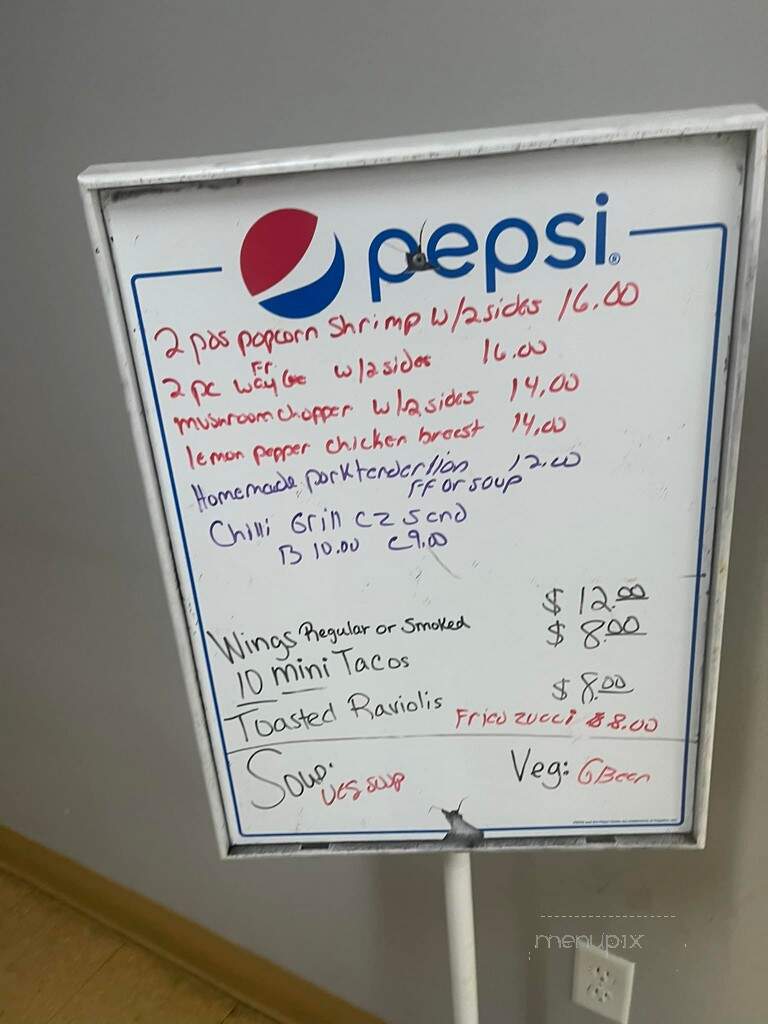 pepsi®
2 pos popcorn Shrimp w/2 sides 16.00
Fr
2 pc w/2 sides 16.00
mushroom chopper w/2 sides 14.00
lemon pepper chicken breast 14.00
Homemade porktenderlion 12.00
FF or soup
Chilli Grill CZ
B 10.00 C 9.00
Wings Regular or Smoked $ 12.00
10 mini Tacos $ 8.00
Toasted Raviolis $ 8.00
Fried zucci $8.00
Soup: Veg: GBean
Veg soup
menupix